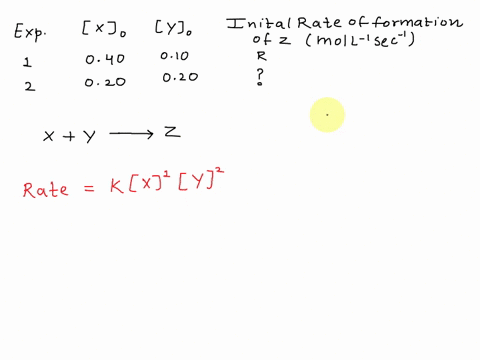 Exp. [X]₀ [Y]₀ Inital Rate of formation
of Z (mol L⁻¹ sec⁻¹)
1 0.40 0.10 R
2 0.20 0.20 ?
X + Y ⟶ Z
Rate = K[X]²[Y]²